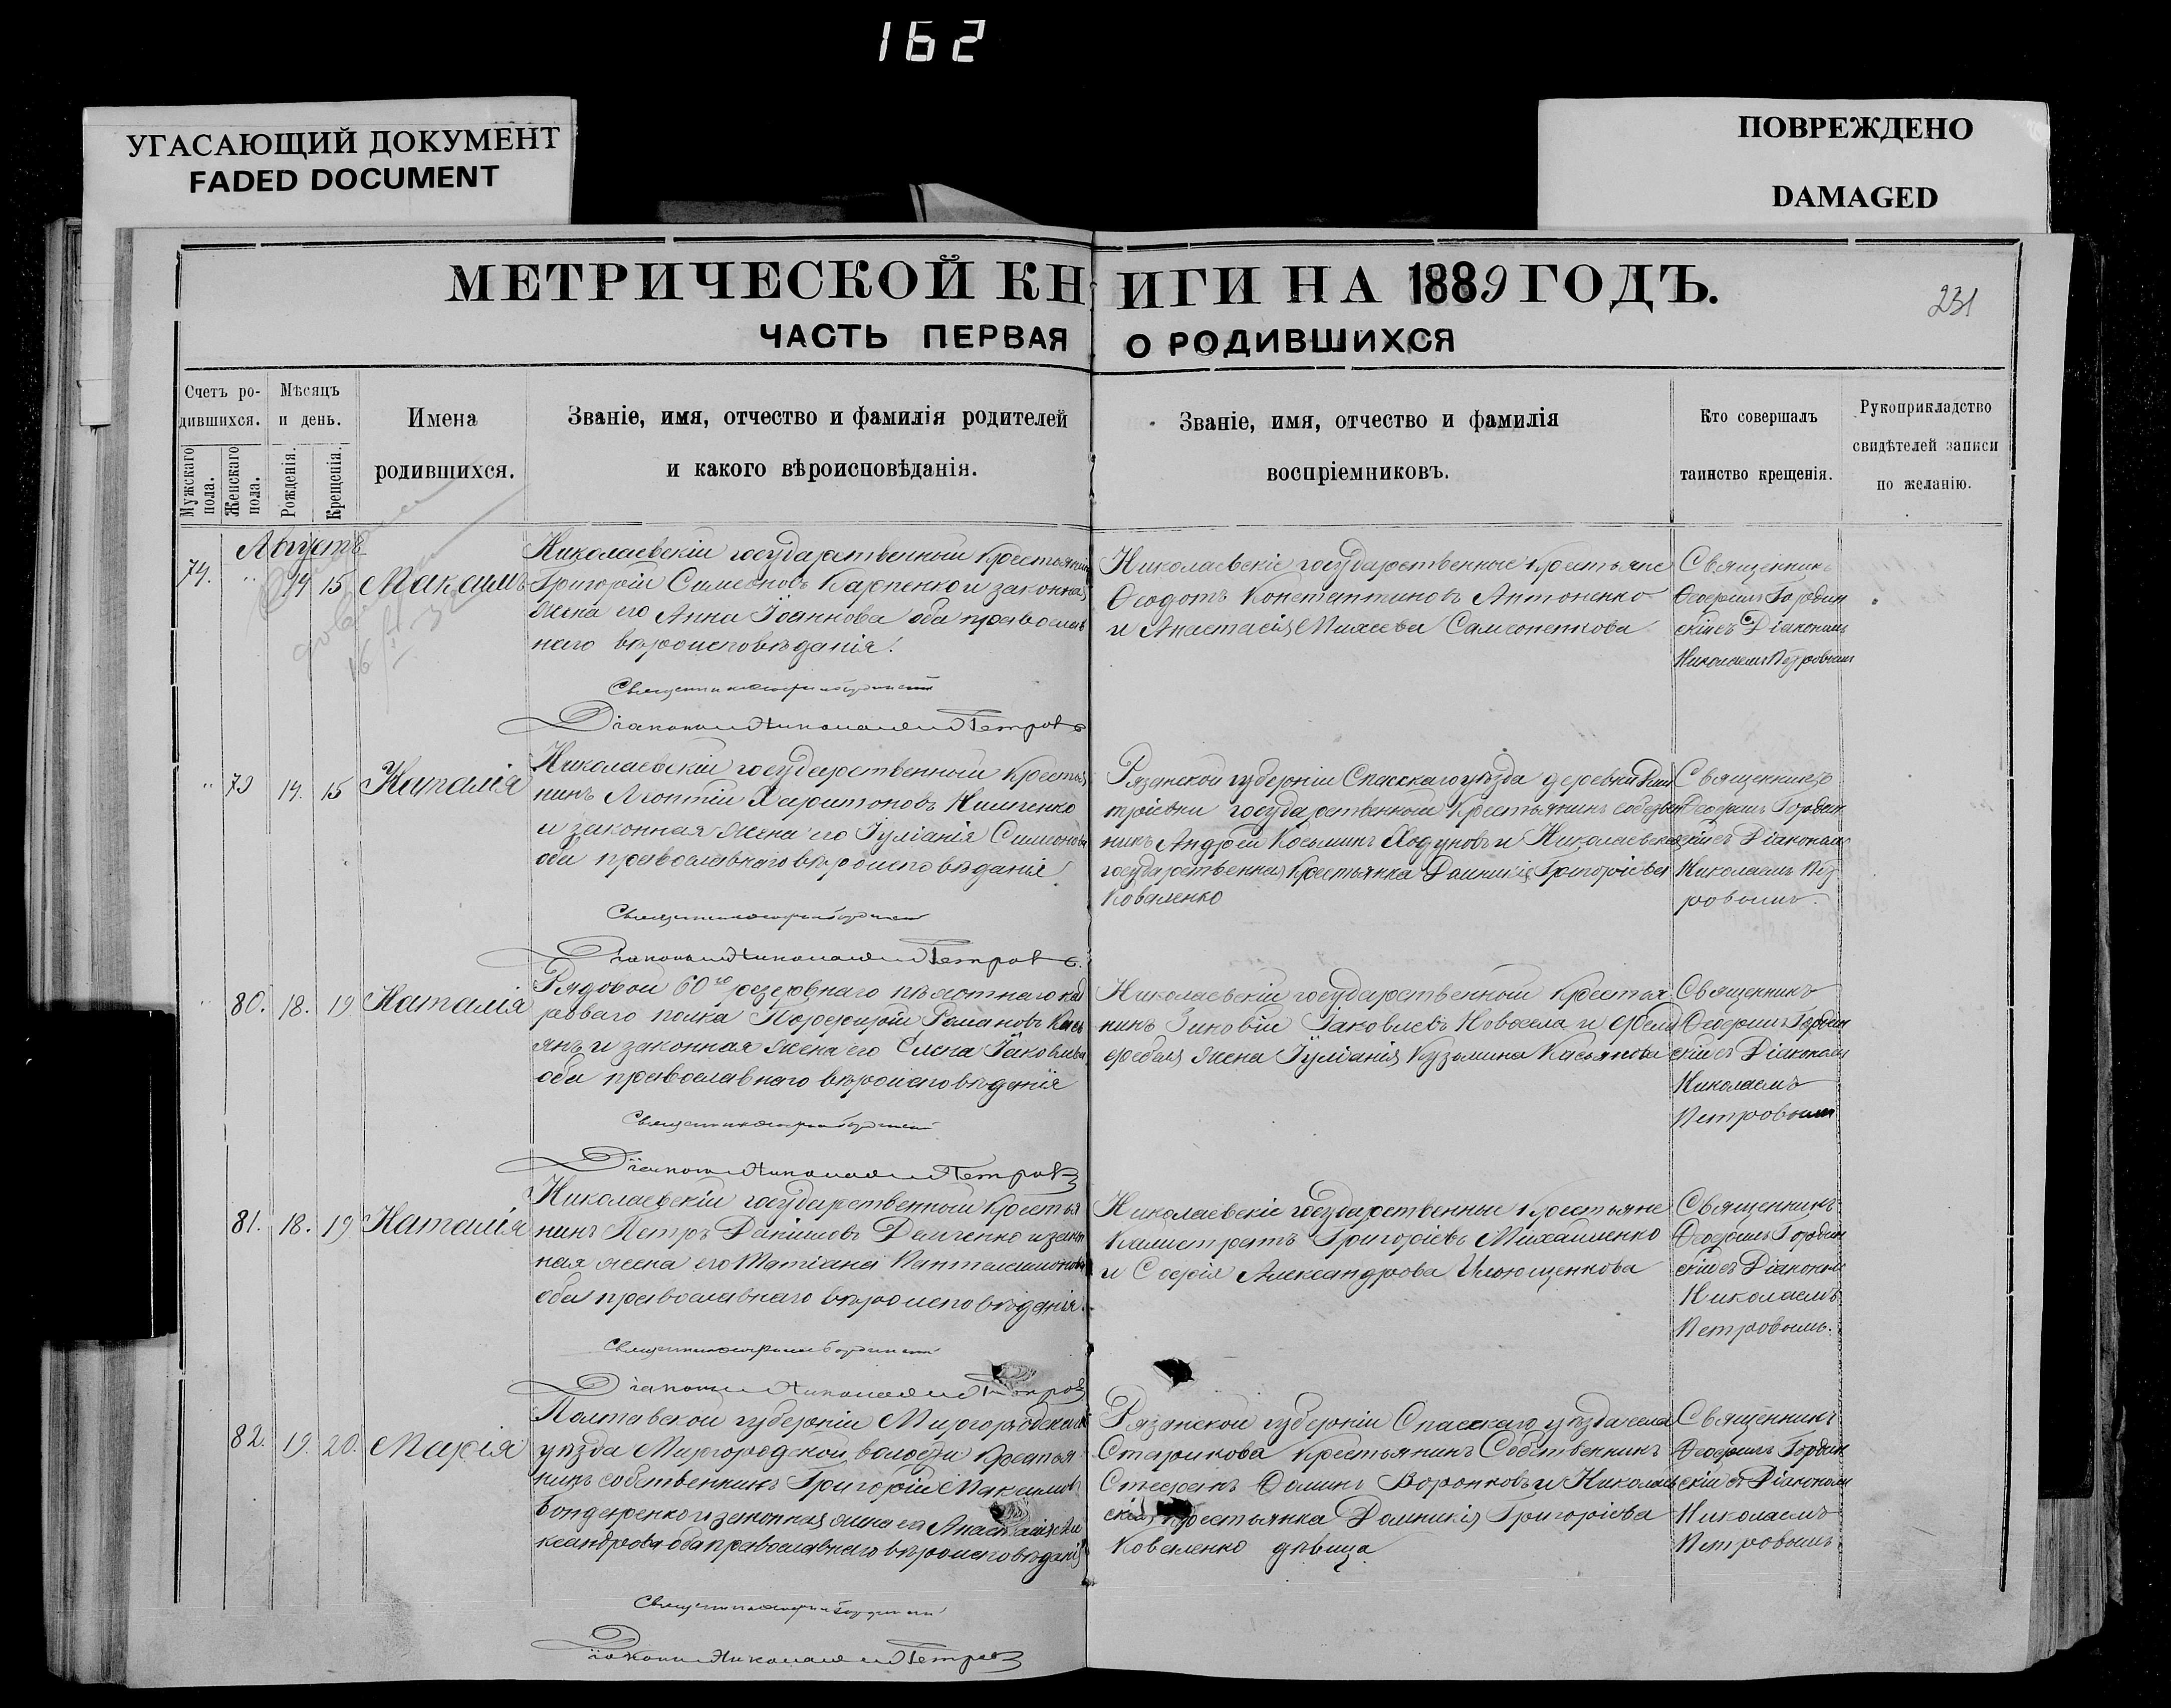 162
УГАСАЮЩИЙ ДОКУМЕНТ
FADED DOCUMENT
ПОВРЕЖДЕНО
DAMAGED
МЕТРИЧЕСКОЙ КНИГИ НА 1889 ГОДЪ.
231
ЧАСТЬ ПЕРВАЯ О РОДИВШИХСЯ
Счетъ ро-
дившихся.
Мужскаго пола.
Женскаго пола.
Мѣсяцъ
и день.
Рожденія.
Крещенія.
Имена
родившихся.
Званіе, имя, отчество и фамилія родителей
и какого вѣроисповѣданія.
Званіе, имя, отчество и фамилія
воспріемниковъ.
Кто совершалъ
таинство крещенія.
Рукоприкладство
свидѣтелей записи
по желанію.
Августъ
74. " 14 15 Максимъ
Николаевскій государственный крестьянинъ
Григорій Симеоновъ Карпенко и законная
жена его Анна Іоаннова оба православ
наго вѣроисповѣданія.
Діаконъ Николай Петровъ
Николаевскіе государственные крестьяне
Ѳеодотъ Константиновъ Антоненко
и Анастасія Самсоненкова
Священникъ
Гордин
скій съ Діакономъ
Николаемъ Петровымъ
" 79 14. 15 Наталія
Николаевскій государственный крестья
нинъ Леонтій Харитоновъ
и законная жена его Іуліанія Симеонова
оба православнаго вѣроисповѣданія
Діаконъ Николай Петровъ.
Рязанской губерніи Спасскаго уѣзда деревни Дми
тріевки государственный крестьянинъ собствен
никъ Андрей Косьминъ Ходуновъ и Николаевская
государственная крестьянка Домникія Григоріева
Коваленко
Священникъ
Гордин
скій съ Діакономъ
Николаемъ Пет
ровымъ.
" 80. 18. 19 Наталія
Рядовой 60го резервнаго пѣхотнаго кад
роваго полка Порфирій Романовъ Кась
янъ и законная жена его Елена Іаковлева
оба православнаго вѣроисповѣданія
Діаконъ Николай Петровъ
Николаевскій государственный крестья
нинъ Зиновій Іаковлевъ Новосела и
жена Іуліанія Кузьмина Касьянова
Священникъ
Гордин
скій съ Діакономъ
Николаемъ
Петровымъ
81. 18. 19 Наталія
Николаевскій государственный крестья
нинъ Петръ Даниловъ Данченко и закон
ная жена его Татіана Пантелеимонова
оба православнаго вѣроисповѣданія.
Діаконъ Николай Петровъ
Николаевскіе государственные крестьяне
Калистратъ Григоріевъ Михайленко
и Софія Александрова Ильющенкова
Священникъ
Гордин
скій съ Діакономъ
Николаемъ
Петровымъ.
82. 19. 20. Марія
Полтавской губерніи Миргородскаго
уѣзда Миргородской волости крестья
нинъ собственникъ Григорій Максимовъ
Бондаренко и законная жена его Анастасія Але
ксандрова оба православнаго вѣроисповѣданія
Діаконъ Николай Петровъ
Рязанской губерніи Спасскаго уѣзда села
Старикова крестьянинъ Собственникъ
Стефанъ Ѳоминъ Воронковъ и Николаев
ская крестьянка Домникія Григоріева
Коваленко дѣвица
Священникъ
Гордин
скій съ Діакономъ
Николаемъ
Петровымъ